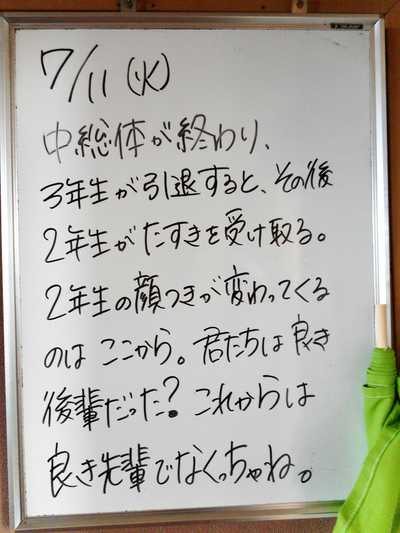 7/11(火)
中総体が終わり、
3年生が引退すると、その後
2年生がたすきを受け取る。
2年生の顔つきが変わってくる
のは ここから。君たちは良き
後輩だった？これからは
良き先輩でなくっちゃね。